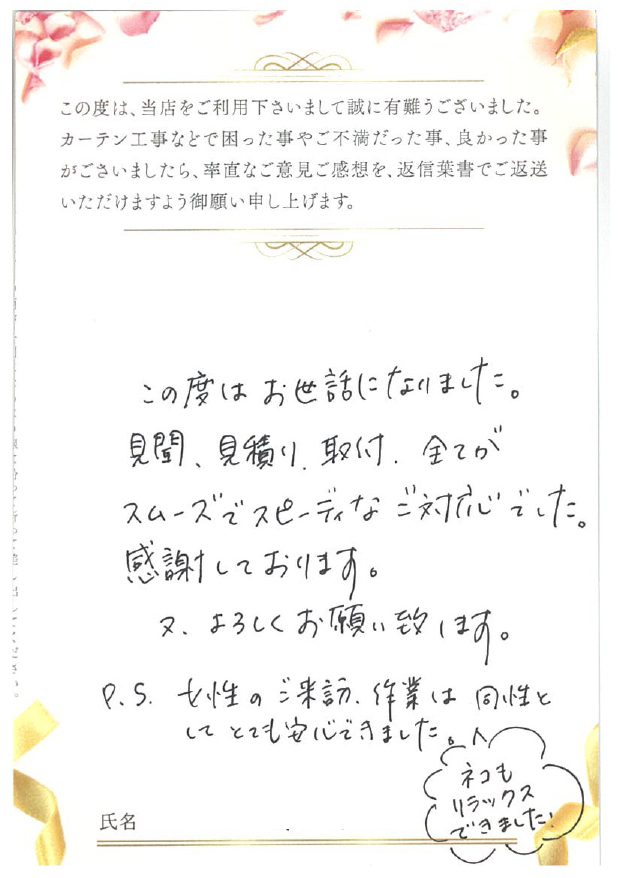 この度は、当店をご利用下さいまして誠に有難うございました。
カーテン工事などで困った事やご不満だった事、良かった事
がございましたら、率直なご意見ご感想を、返信葉書でご返送
いただけますよう御願い申し上げます。
この度はお世話になりました。
見聞、見積り、取付、全てが
スムーズでスピーディなご対応でした。
感謝しております。
又、よろしくお願い致します。
P.S. 女性のご来訪、作業は同性と
してとても安心できました。
ネコも
リラックス
できました!
氏名